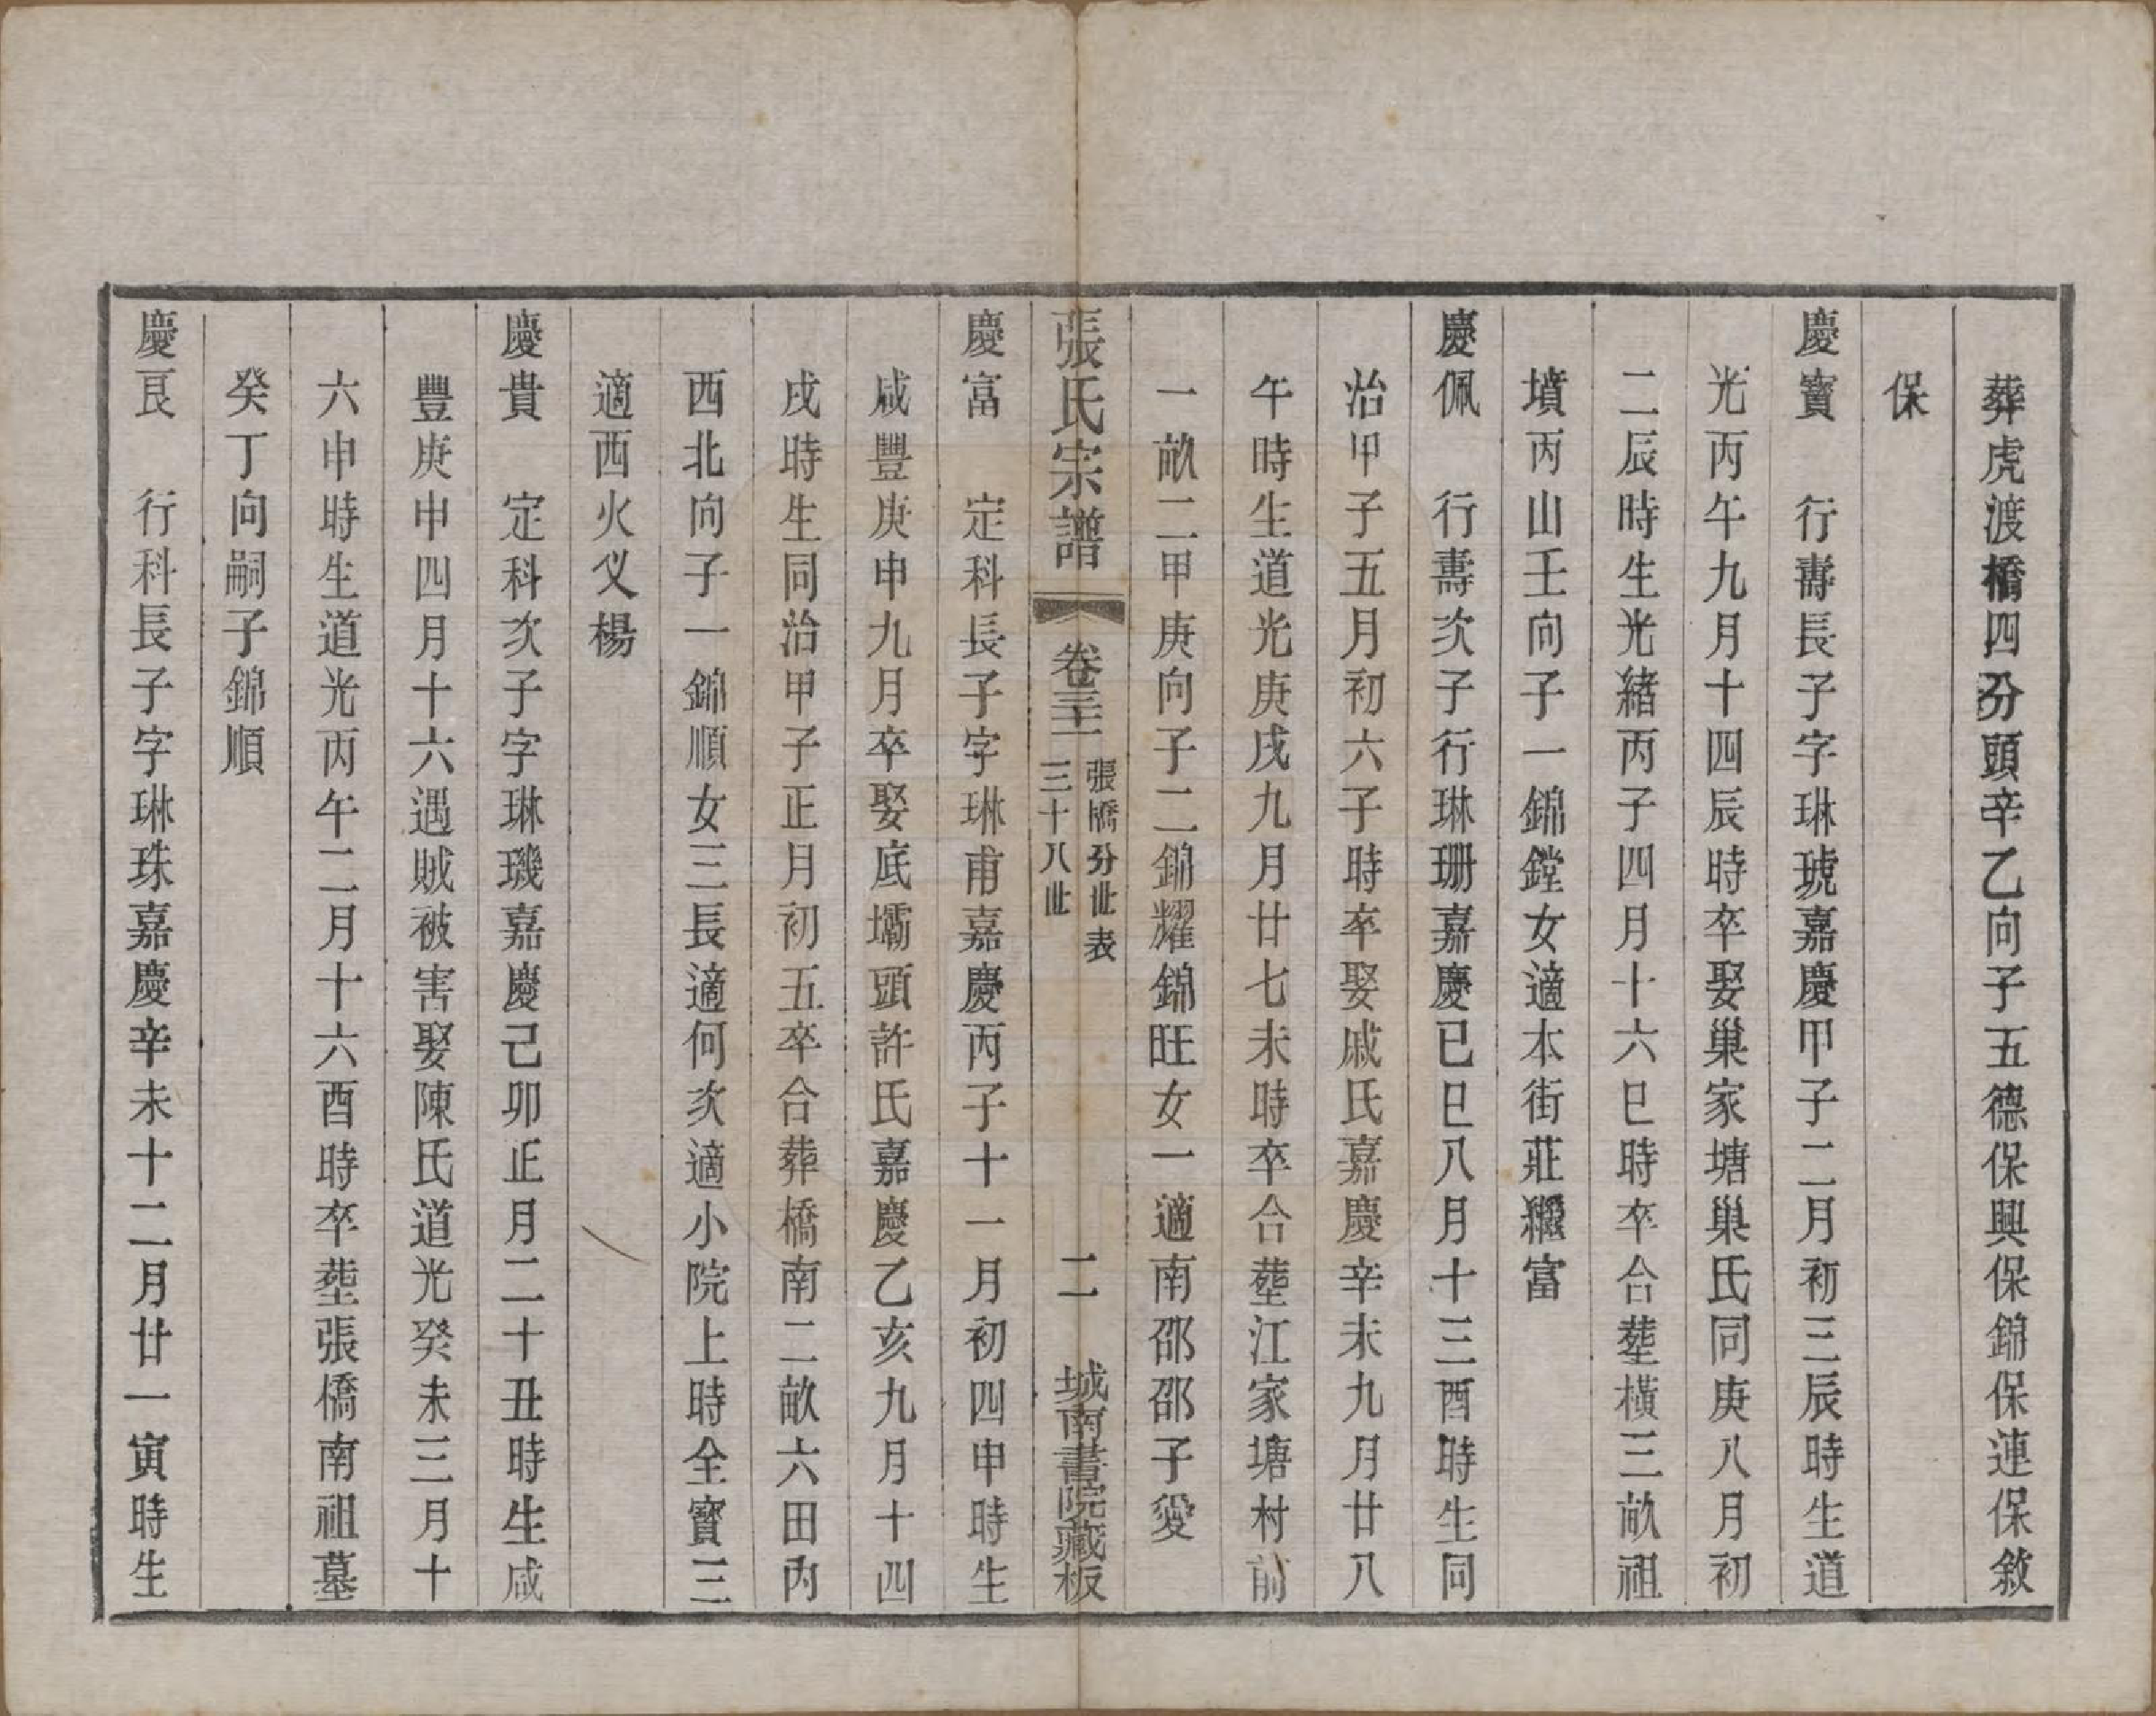 葬虎渡橋四分頭辛乙向子五德保興保錦保連保敘
保
慶寶　行壽長子字琳琥嘉慶甲子二月初三辰時生道
光丙午九月十四辰時卒娶巢家塘巢氏同庚八月初
二辰時生光緒丙子四月十六巳時卒合塟橫三畝祖
墳丙山壬向子一錦鏜女適本街莊繼富
慶佩　行壽次子行琳珊嘉慶已巳八月十三酉時生同
治甲子五月初六子時卒娶戚氏嘉慶辛未九月廿八
午時生道光庚戌九月廿七未時卒合塟江家塘村前
一畝二甲庚向子二錦耀錦旺女一適南邵邵子愛
張氏宗譜　卷三十二　張橋分世表　三十八世　二　城南書院藏板
慶富　定科長子字琳甫嘉慶丙子十一月初四申時生
咸豐庚申九月卒娶底壩頭許氏嘉慶乙亥九月十四
戌時生同治甲子正月初五卒合葬橋南二畝六田內
西北向子一錦順女三長適何次適小院上時全寶三
適西火义楊
慶貴　定科次子字琳璣嘉慶己卯正月二十丑時生咸
豐庚申四月十六遇賊被害娶陳氏道光癸未三月十
六申時生道光丙午二月十六酉時卒塟張橋南祖墓
癸丁向嗣子錦順
慶艮　行科長子字琳珠嘉慶辛未十二月廿一寅時生